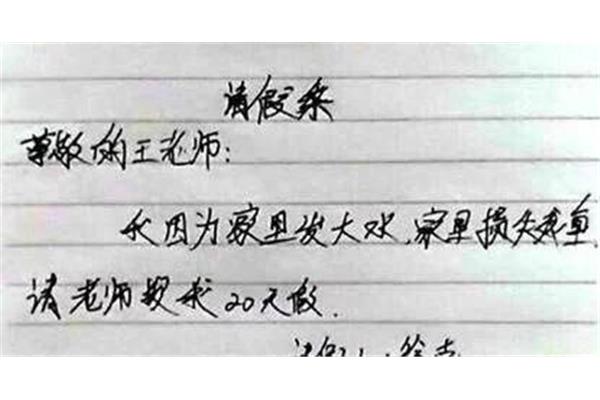 请假条
尊敬的王老师：
我因为家里发大水，家里损失惨重
请老师批我20天假.
请假人：